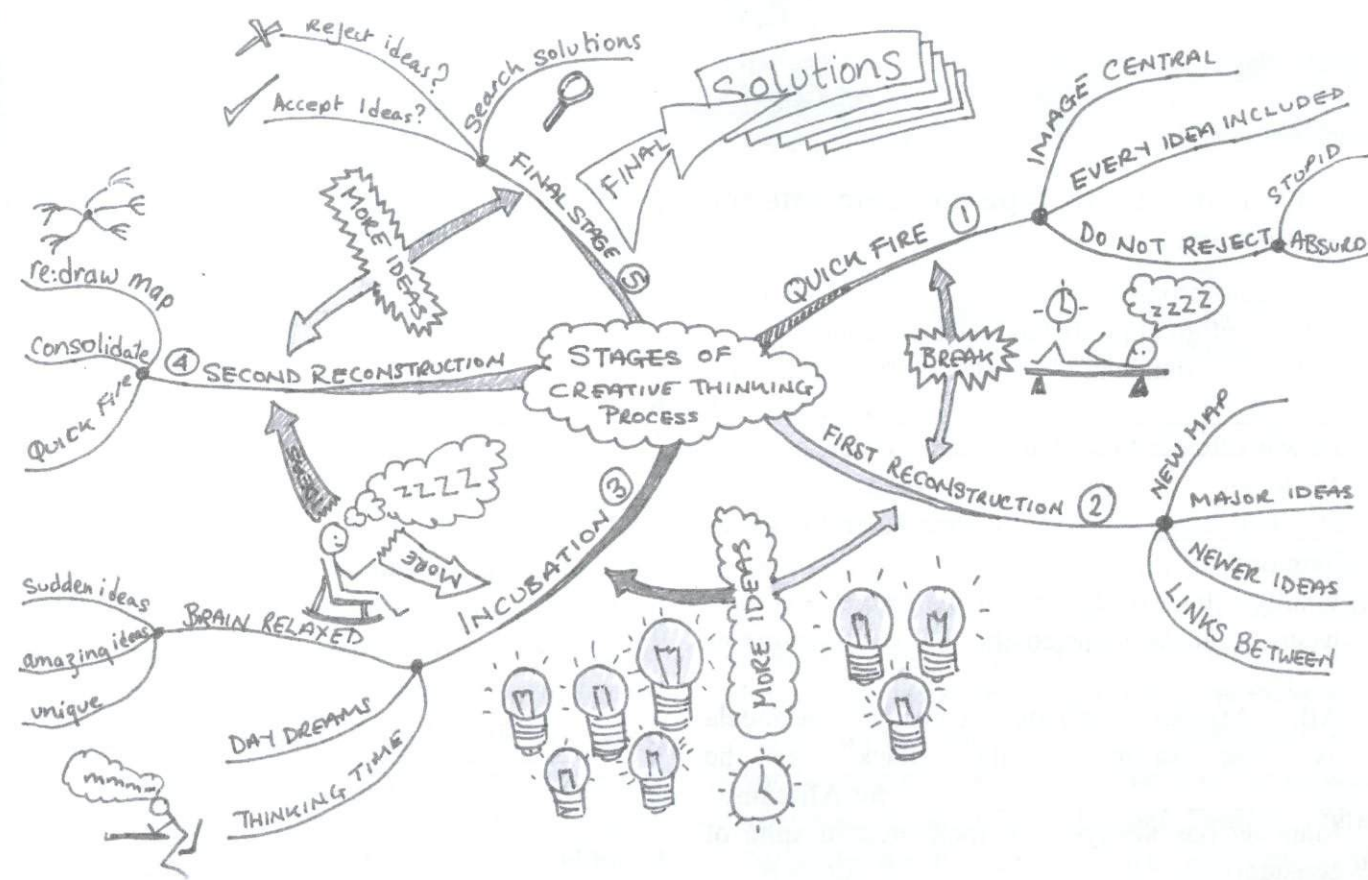 STAGES OF
CREATIVE THINKING
PROCESS
QUICK FIRE 1
IMAGE CENTRAL
EVERY IDEA INCLUDED
DO NOT REJECT
STUPID
ABSURD
BREAK
zzzz
FIRST RECONSTRUCTION 2
NEW MAP
MAJOR IDEAS
NEWER IDEAS
LINKS BETWEEN
MORE IDEAS
INCUBATION 3
BRAIN RELAXED
Sudden ideas
amazing ideas
unique
DAY DREAMS
THINKING TIME
mmmm
zzzz
MORE
IDEAS
4 SECOND RECONSTRUCTION
re:draw map
Consolidate
QUICK Fire
MORE IDEAS
FINAL STAGE 5
Reject ideas?
Accept Ideas?
Search solutions
FINAL
Solutions